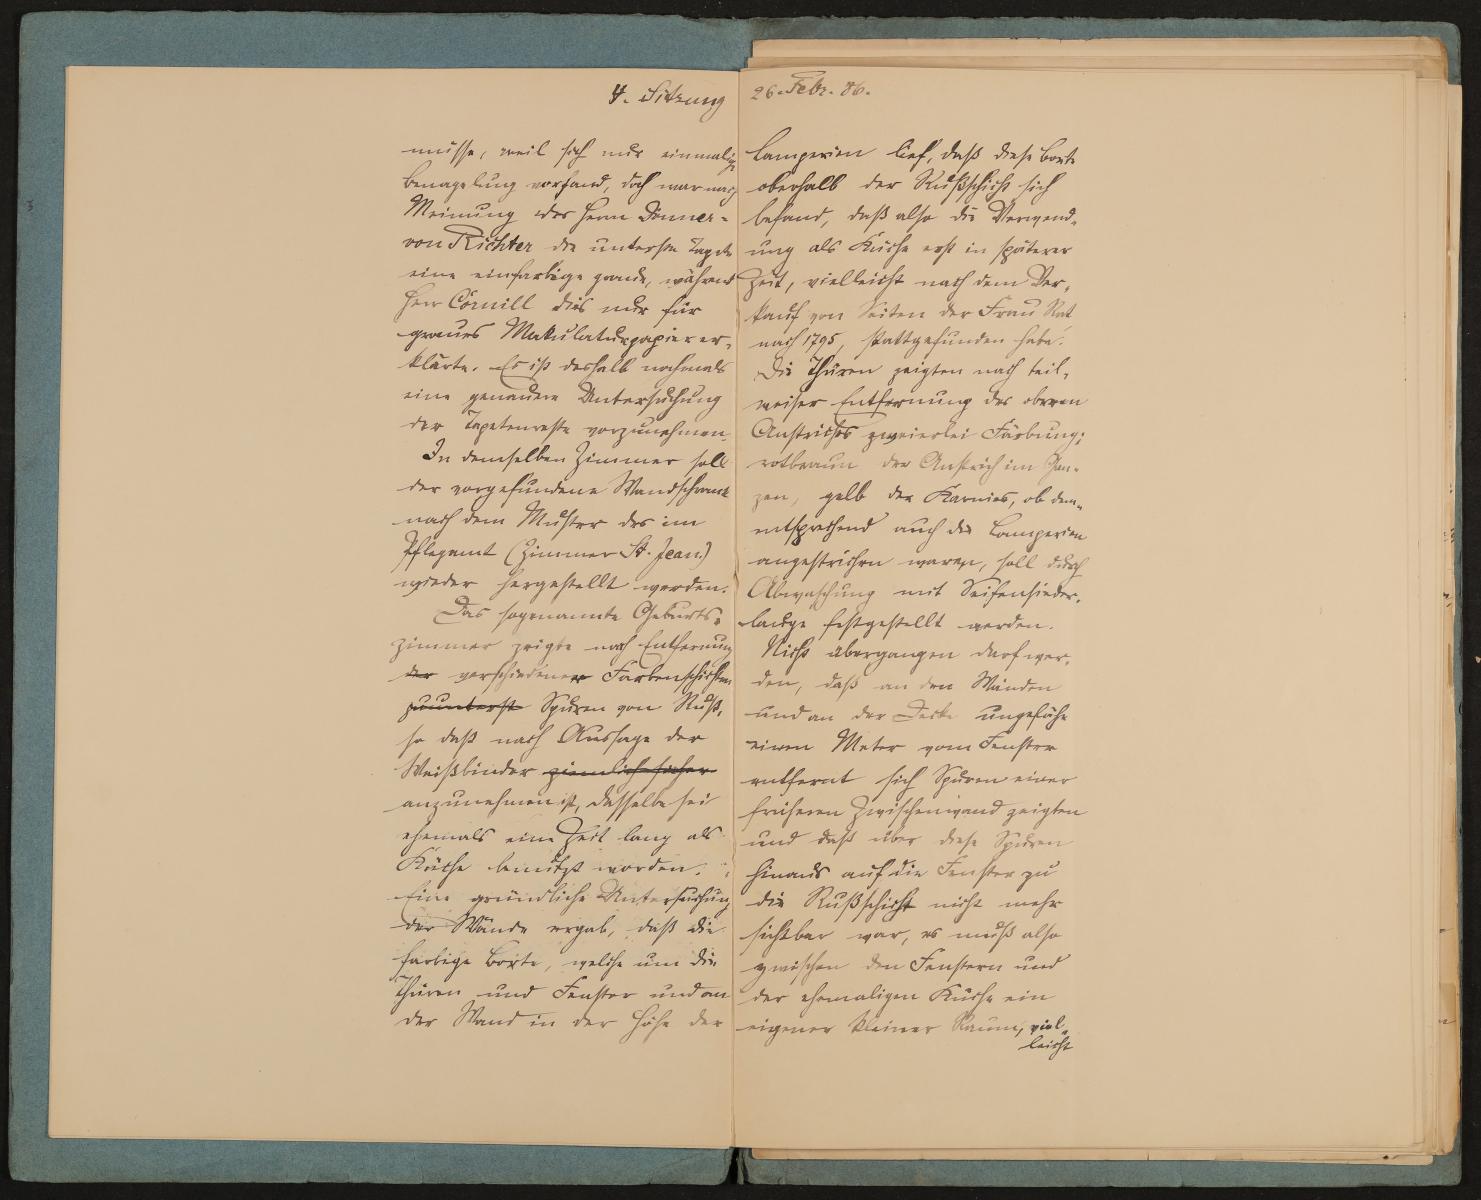 4. Sitzung
müsse, weil sich nur einmalige
Benagelung vorfand, doch war nach
Meinung des Herrn Donner-
von Richter die unterste Tapete
eine einfarbige graue, während
Herr Cornill dies nur für
graues Makulaturpapier er-
klärte. Es ist deshalb nochmals
eine genauere Untersuchung
der Tapetenreste vorzunehmen.
In demselben Zimmer soll
der vorgefundene Wandschrank
nach dem Muster des im
Pflegamt (Zimmer St. Jean)
wieder hergestellt werden.
Das sogenannte Geburts-
zimmer zeigte nach Entfernung
der verschiedener Farbenschichten
zuunterst Spuren von Ruß,
so daß nach Aussage der
Weißbinder ziemlich sicher
anzunehmen ist, dasselbe sei
ehemals eine Zeit lang als
Küche benützt worden.
Eine gründliche Untersuchung
der Wände ergab, daß die
farbige Borte, welche um die
Thüren und Fenster und an
der Wand in der Höhe der
26. Febr. 86.
Lamperien lief, daß diese Borte
oberhalb der Rußschicht sich
befand, daß also die Verwend-
ung als Küche erst in späterer
Zeit, vielleicht nach dem Ver-
kauf von Seiten der Frau Rat
nach 1795, stattgefunden habe.
Die Thüren zeigten nach teil-
weiser Entfernung des oberen
Anstriches zweierlei Färbung:
rotbraun der Anstrich im Gan-
zen, gelb der Karnies, ob dem-
entsprechend auch die Lamperien
angestrichen waren, soll durch
Abwaschung mit Seifensieder-
lauge festgestellt werden.
Nicht übergangen darf wer-
den, daß an den Wänden
und an der Decke ungefähr
einen Meter vom Fenster
entfernt sich Spuren einer
früheren Zwischenwand zeigten
und daß über diese Spuren
hinaus auf die Fenster zu
die Rußschicht nicht mehr
sichtbar war, es muß also
zwischen den Fenstern und
der ehemaligen Küche ein
eigener kleiner Raum, viel-
leicht